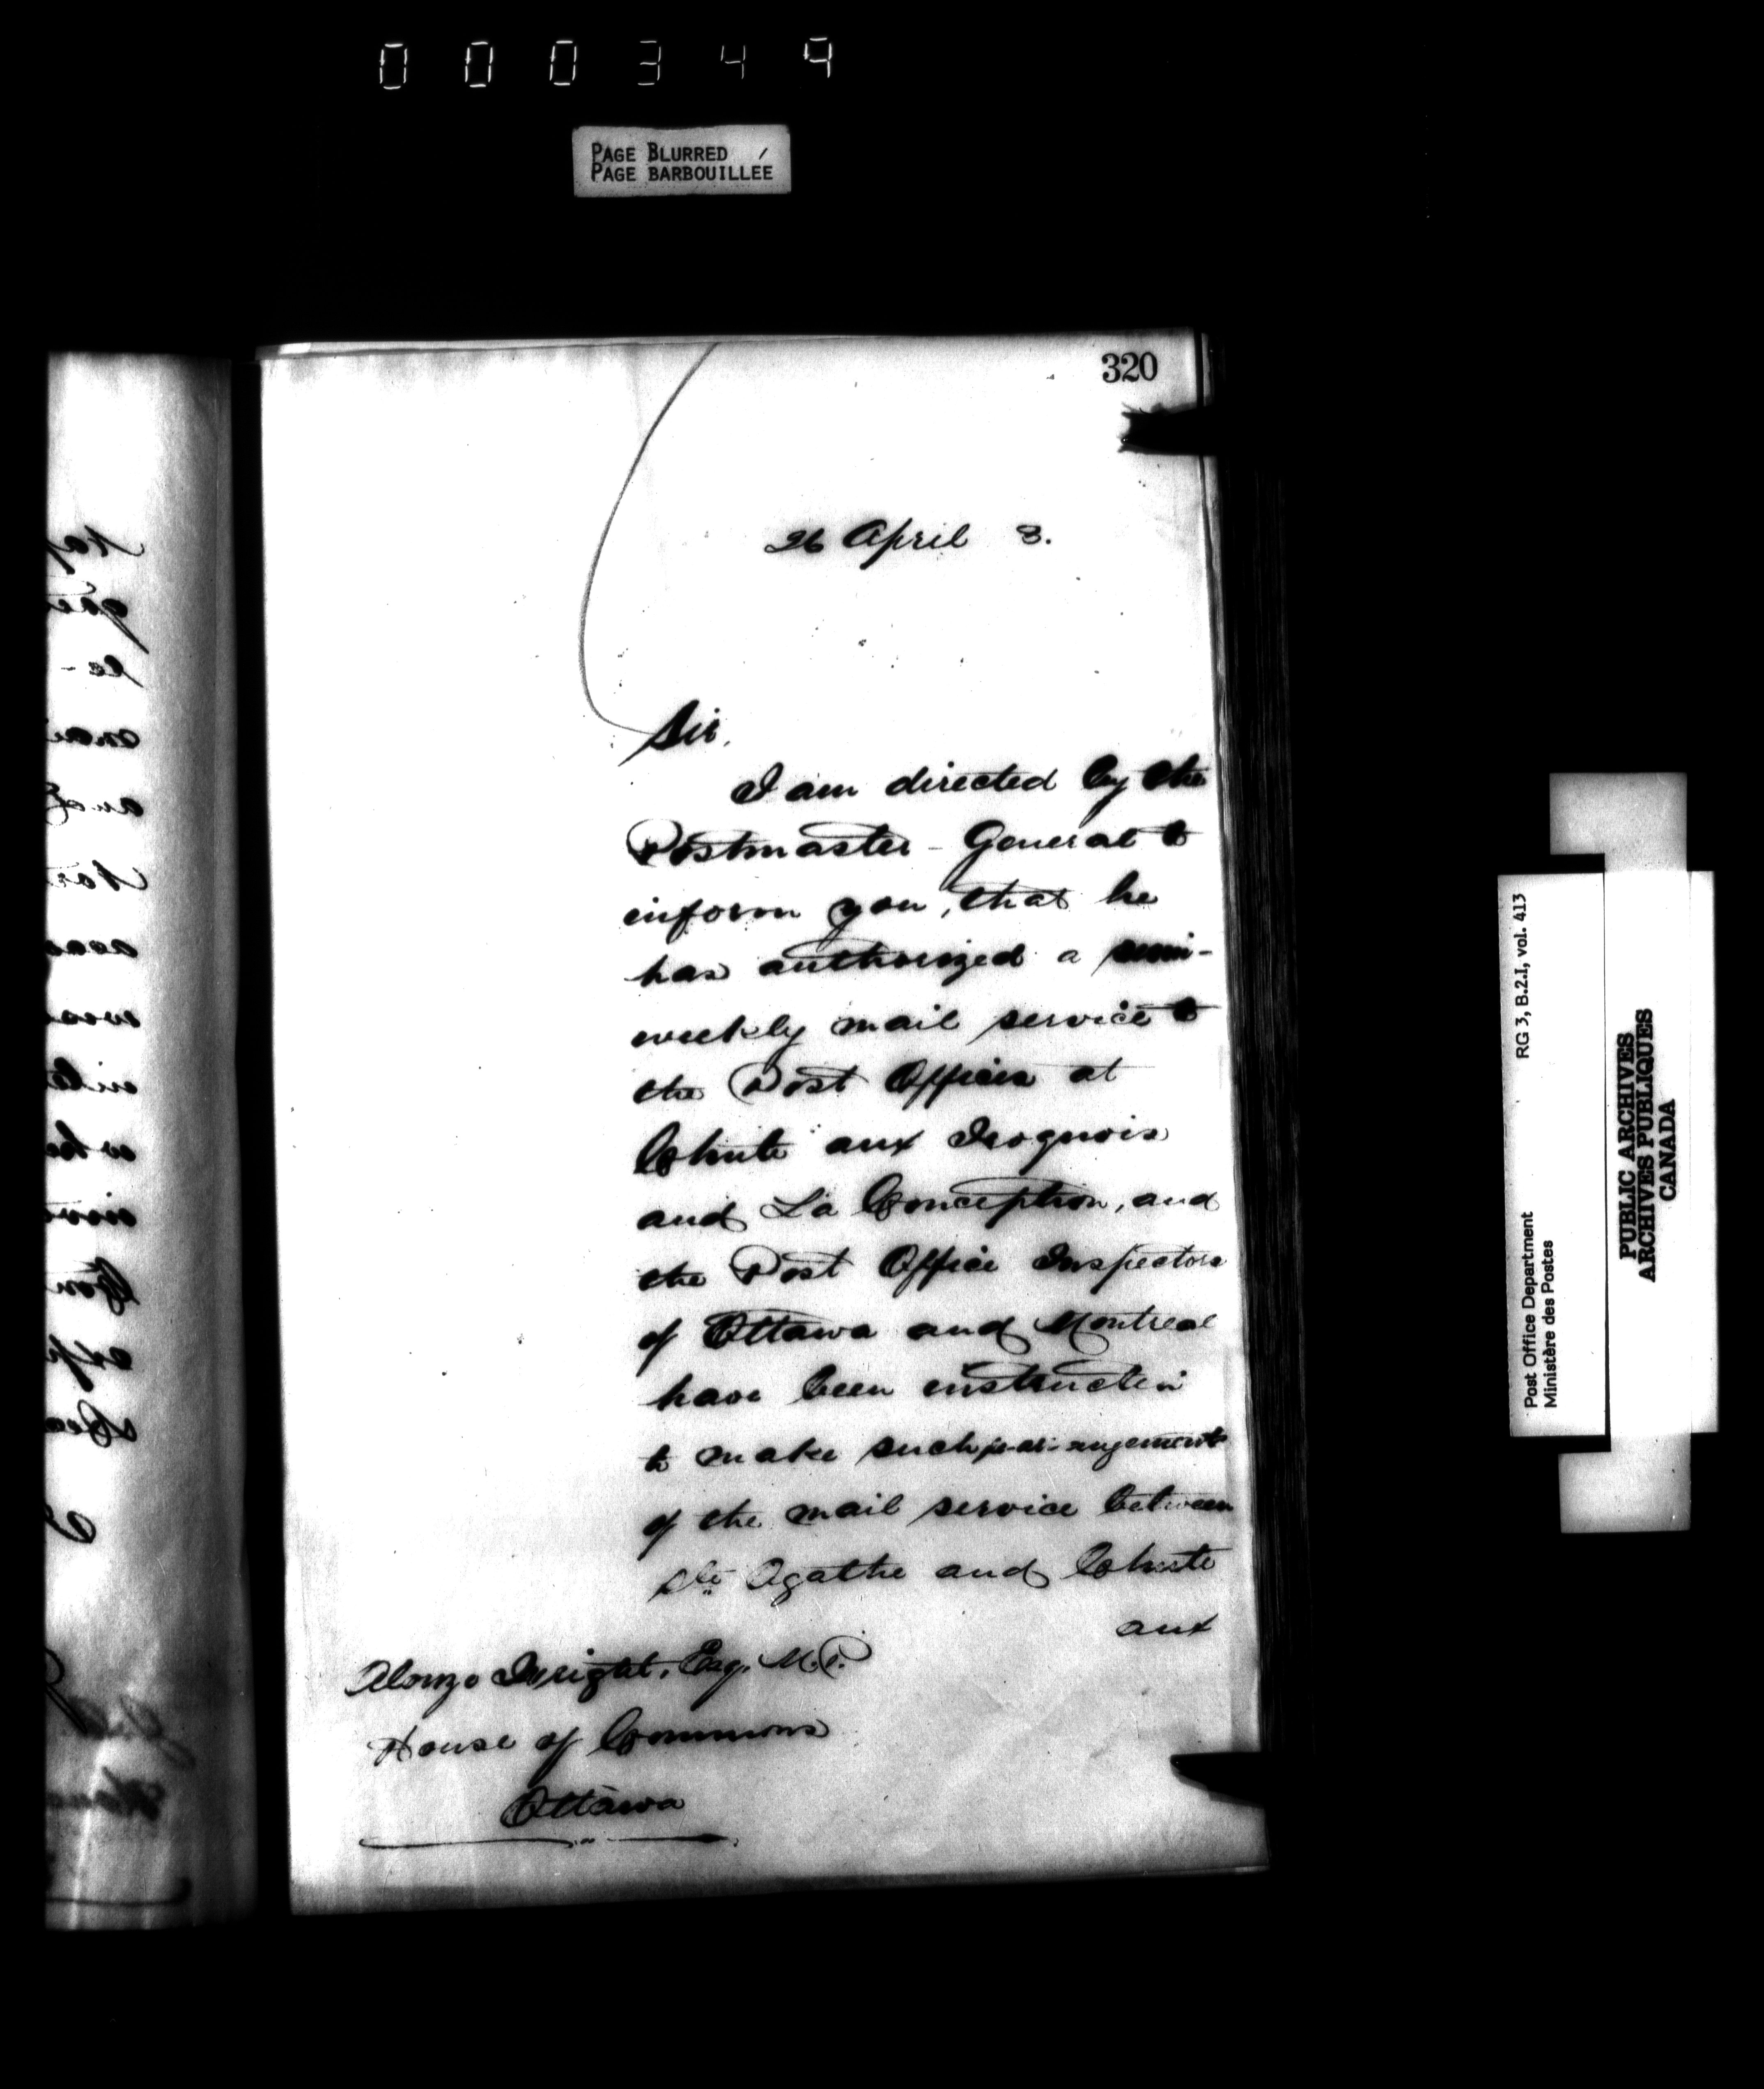 000349
PAGE BLURRED
PAGE BARBOUILLÉE
320
26 April 3.
Sir,
I am directed by the
Postmaster-General to
inform you, that he
has authorized a semi-
weekly mail service to
the Post Offices at
Chute aux Iroquois
and La Conception, and
the Post Office Inspectors
of Ottawa and Montreal
have been instructed
to make such
of the mail service between
Ste Agathe and Chute
aux
Alonzo Wright, Esq. M.P.
House of Commons
Ottawa
RG 3, B.2.I, vol. 413
Post Office Department
Ministère des Postes
PUBLIC ARCHIVES
ARCHIVES PUBLIQUES
CANADA